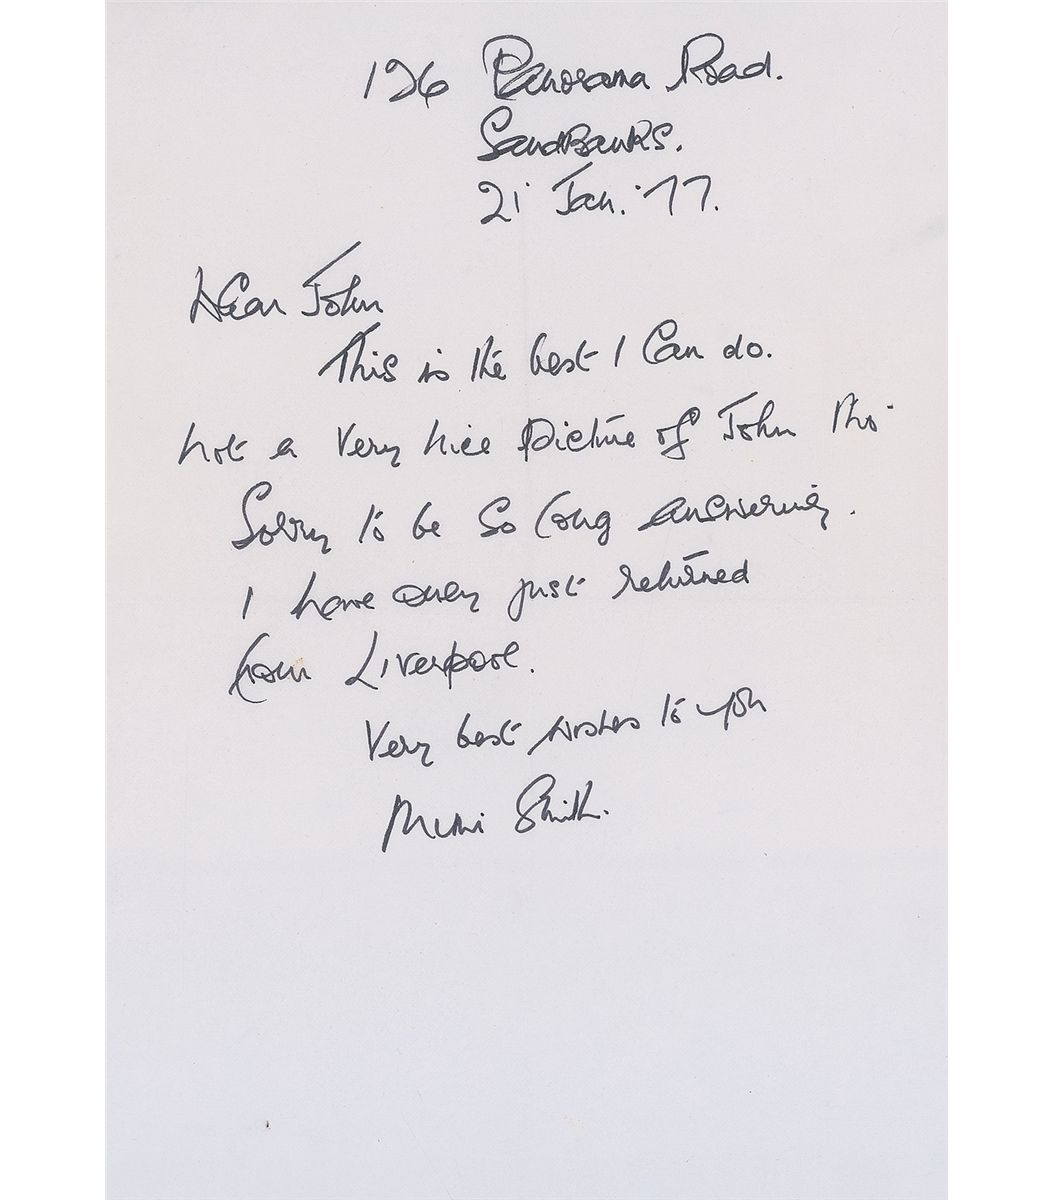 126 Panorama Road.
SandBanks.
21 Jan. '77.
Dear John
This is the best I Can do.
not a Very nice Picture of John tho'
Sorry to be so long answering.
I have only just returned
from Liverpool.
Very best wishes to you
Mimi Smith.